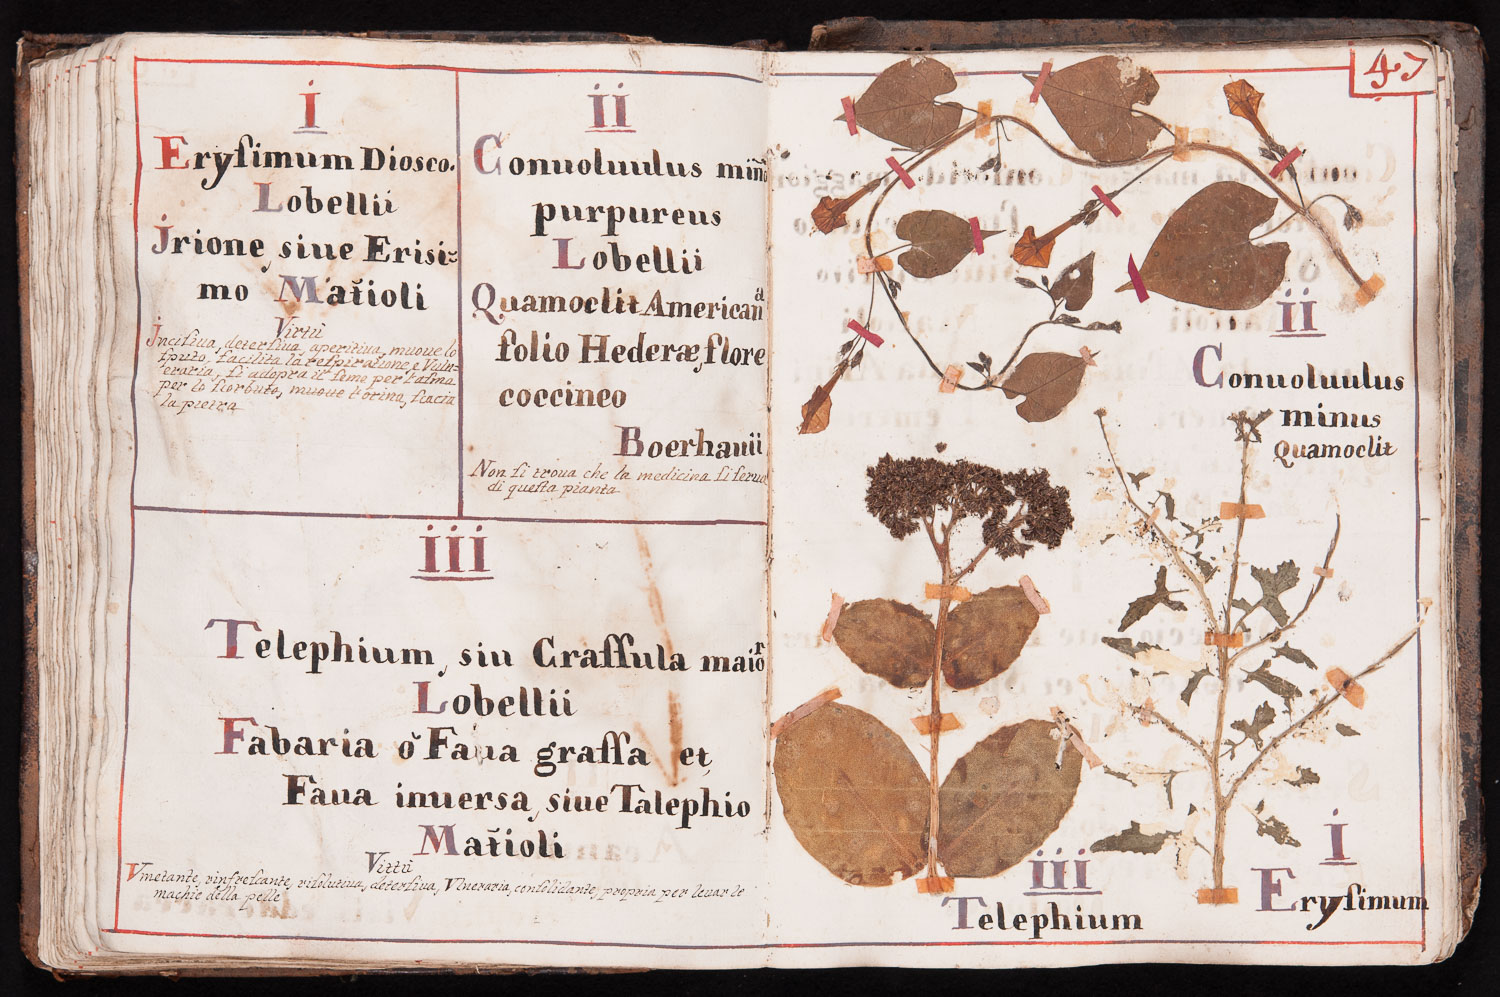 i
Eryſimum Dioſco.
Lobellii
Jrione, siue Erisi=
mo Mat̃ioli
Virtù
Jnciſiua, deterſiua, aperitiua, muoue lo
ſputo, facilita la reſpiratione, e Vuln=
eraria, ſi adopra il ſeme per l'aſma
per lo ſcorbuto, muoue l'orina, ſcacia
la pietra
ii
Conuoluulus min̄
purpureus
Lobellii
Quamoclit Americanª
folio Hederæ, flore
coccineo
Boerhauii
Non ſi troua che la medicina ſi ſerua
di queſta pianta
iii
Telephium, siu Craſſula maioʳ
Lobellii
Fabaria ò Faua graſſa et
Faua inuersa, siue Talephio
Mat̃ioli
Virtù
Vmetante, rinfreſcante, riſolutiua, deterſiua, Vlneraria, conſolidante, propria per leuar le
machie della pelle
47
ii
Conuoluulus
minus
Quamoclit
iii
Telephium
i
Eryſimum